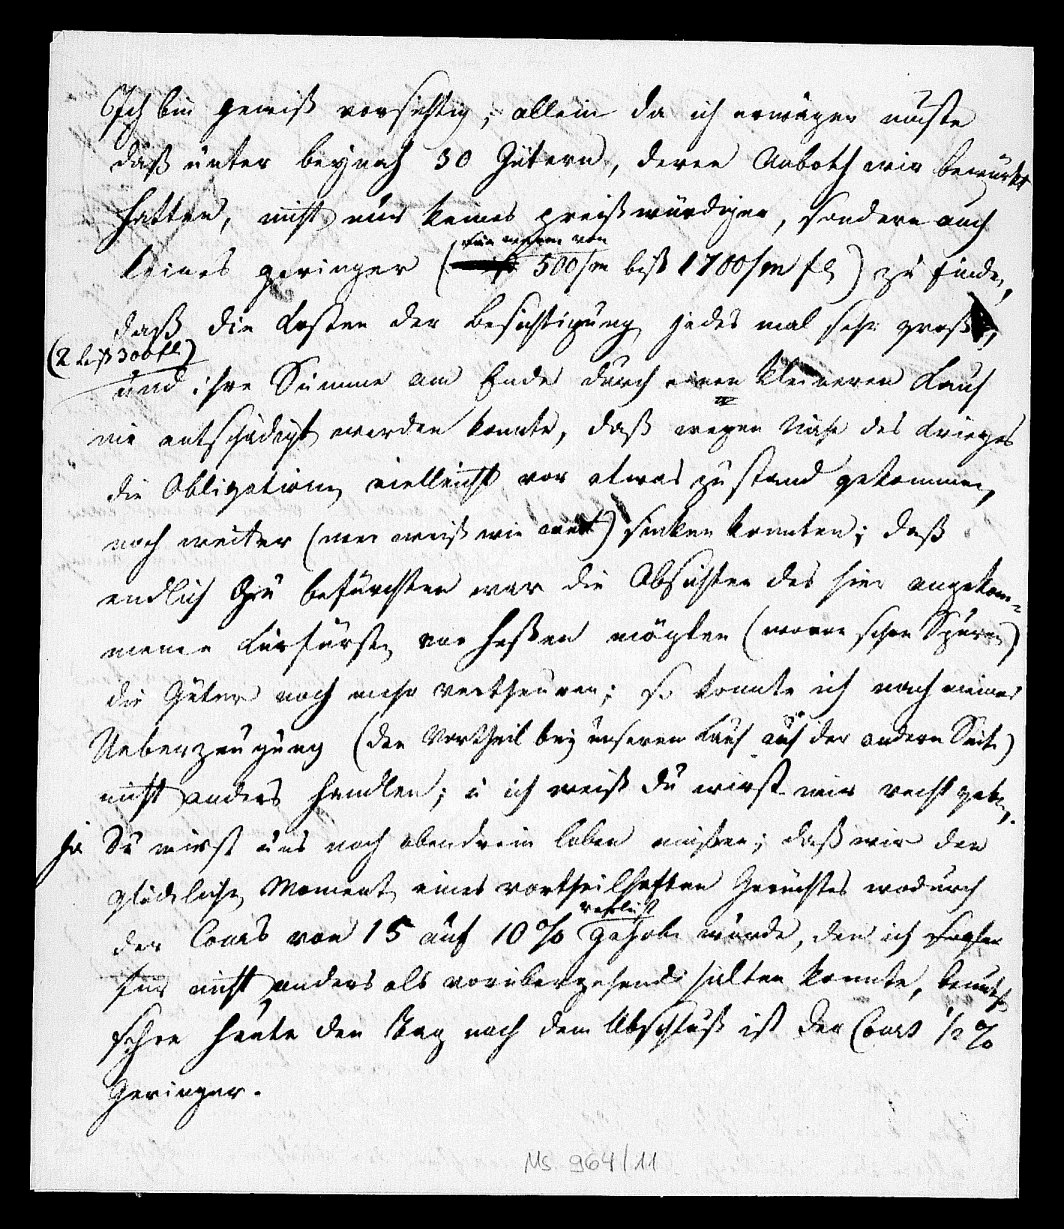 Ich bin gewiß vorsichtig; allein da ich erwägen muste
daß unter beynah 30 Gütern, deren Anboth wir bewürkt
hatten, nicht nur keines preißwürdiger, sondern auch
von
keines geringer ( 500/m biß 1700/m fl) zu finden,
daß die Kosten der Besichtigung jedes mal sehr groß
(2 biß 300 fl)
und ihre Summe am Ende durch einen kleineren Kauf
nie entschädigt werden konnte, daß wegen Nähe des Krieges
die Obligationen vielleicht vor etwas zu stand gekommen,
noch weiter (wer weiß wie weit) sinken konnten; daß
endlich zu befürchten war die Absichten des hier angekom-
menen Kurfürsten von Heßen mögten (wovon schon Spuren)
die Güter noch mehr vertheuren; so konnte ich nach meiner
Ueberzeugung (den Vortheil bey unserem Kauf auf der andern Seite)
nicht anders handlen; u ich weiß du wirst mir recht geben,
ja Du wirst uns noch obendrein loben müßen; daß wir den
glücklichen Moment eines vortheilhaften Gerüchtes wodurch
der Cours von 15 auf 10 % gehoben wurde, den ich
für nicht anders als vorübergehend halten konnte, benutzt
schon heute den Tag nach dem Abschluß ist der Cours 1/2 %
Geringer.
Ms. 964/11